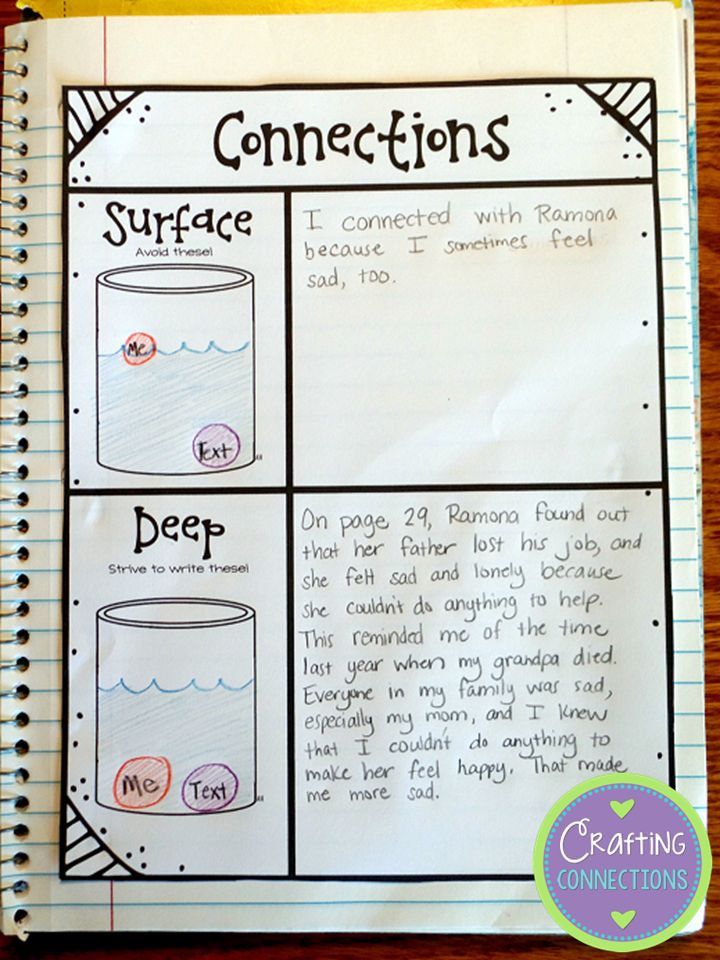 Connections
Surface
Avoid these!
Me
Text
I connected with Ramona
because I sometimes feel
sad, too.
Deep
Strive to write these!
Me
Text
On page 29, Ramona found out
that her father lost his job, and
she felt sad and lonely because
she couldn't do anything to help.
This reminded me of the time
last year when my grandpa died.
Everyone in my family was sad,
especially my mom, and I knew
that I couldn't do anything to
make her feel happy. That made
me more sad.
Crafting
CONNECTIONS